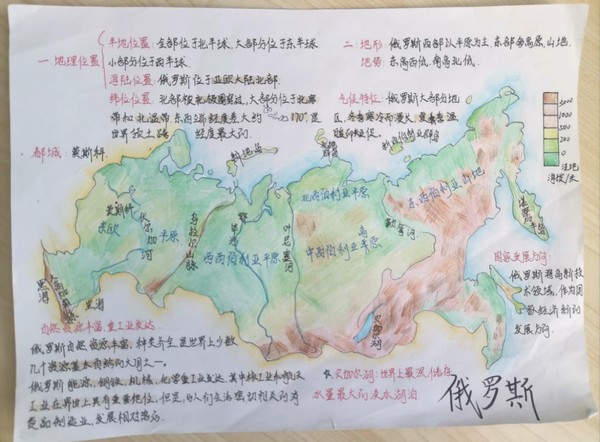 一 地理位置
半球位置:全部位于北半球,大部分位于东半球
小部分位于西半球.
海陆位置:俄罗斯位于亚欧大陆北部
纬位位置:北部
大部分位于北寒
带和北温带,东西
170°是
世界
经度最大的.
二、地形:俄罗斯西部以平原为主,东部为高原,山地,
地势:东高西低,南高北低.
气候特征:俄罗斯大部分地
区,冬季寒冷而漫长,夏季温
暖却短促.
3000
1000
500
200
0
洼地
海拔/米
都城:莫斯科
北西伯利亚平原
东西伯利亚山地
莫斯科
东欧
平原
伏尔加河
乌拉尔山脉
西西伯利亚平原
叶尼塞河
中西伯利亚
高原
勒拿河
黑海
里海
贝加尔湖
国家发展方向:
俄罗斯将高新技
术领域,作为国
经济新的
发展方向.
自然资源丰富,重工业发达
俄罗斯自然资源丰富,种类齐全,是世界上少数
几个资源基本自给的大国之一.
俄罗斯能源,钢铁,机械,化学重工业发达,其中核工业和航天
工业在界世上具有重要地位,但是,与人们生活密切相关的消
费品制造业,发展相对落后.
贝加尔湖:世界上最深,储存
水量最大的淡水湖泊
俄罗斯